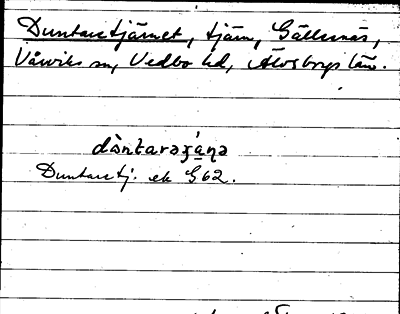 Duntaretjärnet, tjärn, Gällsnäs,
Vårviks sn, Vedbo hd, Älvsborgs län.
Duntaretj. ek G62.